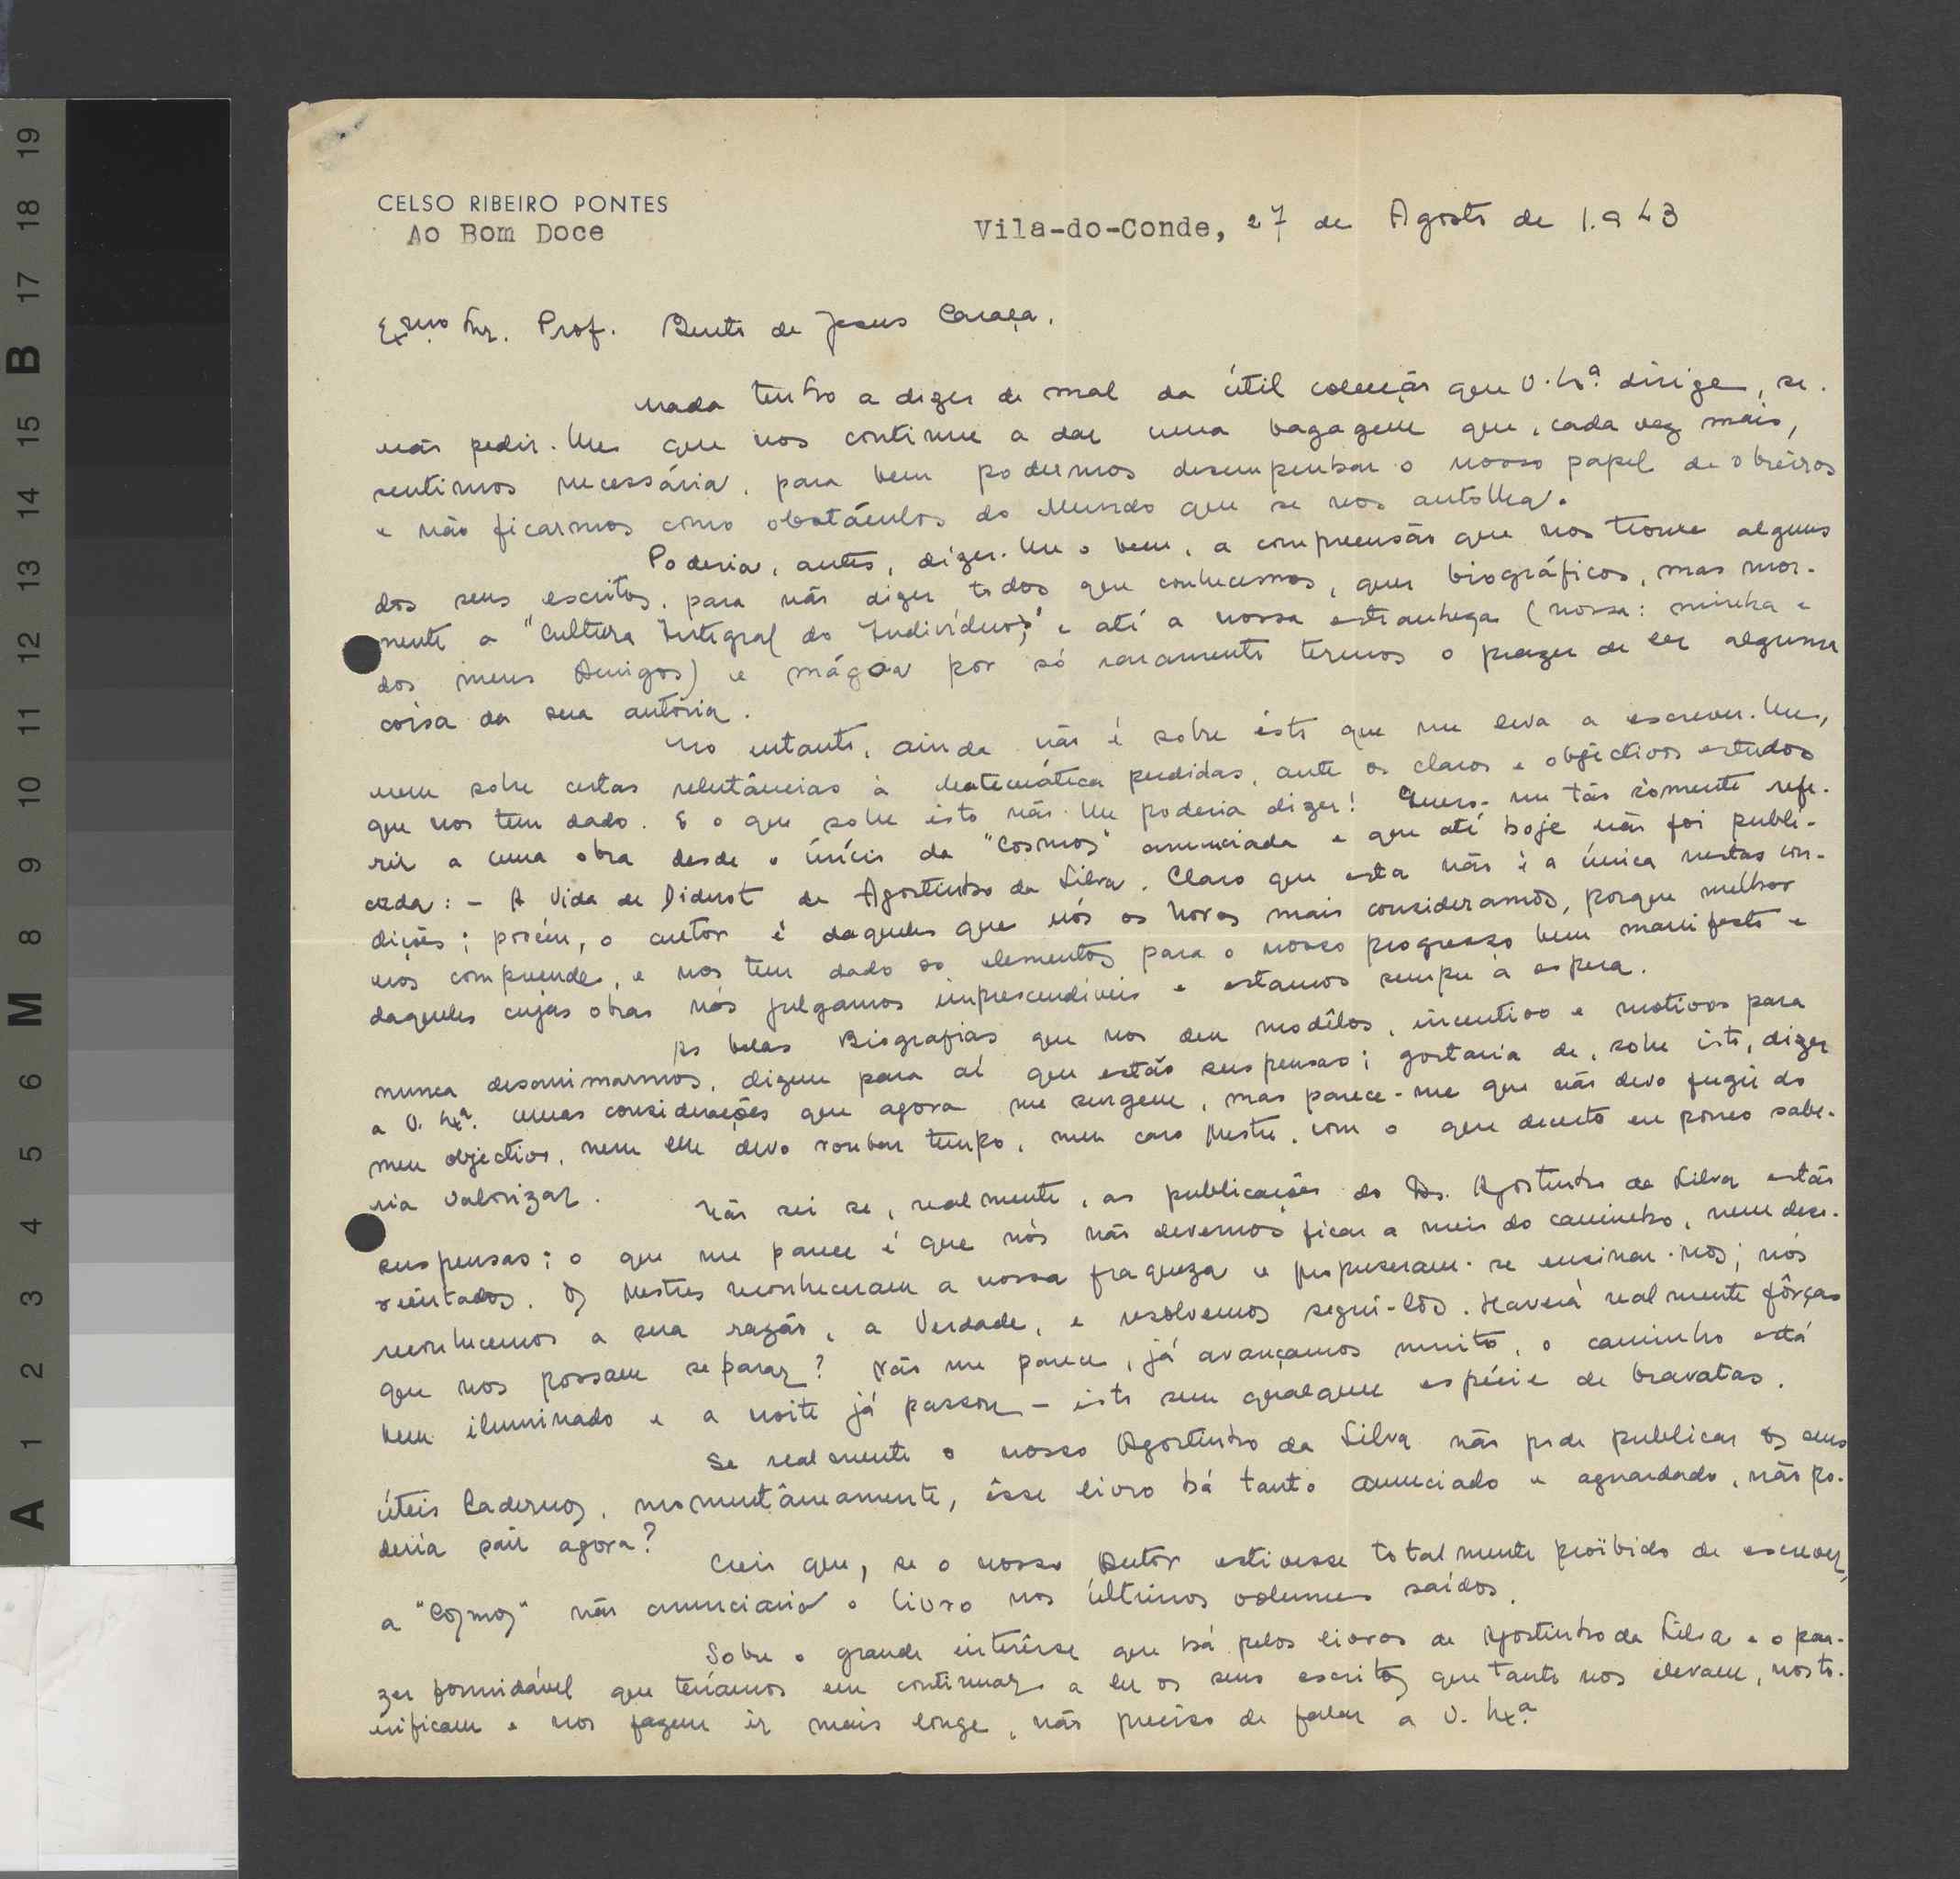 CELSO RIBEIRO PONTES
Ao Bom Doce
Vila-do-Conde, 27 de Agosto de 1.943
Exmo Snr. Prof. Bento de Jesus Caraça.
Nada tenho a dizer de mal da útil colecção que V. Exª. dirige, se-
não pedir-lhe que nos continue a dar uma bagagem que, cada vez mais,
sentimos necessária, para bem podermos desempenhar o nosso papel de obreiros
e não ficarmos como obstáculos do Mundo que se nos antolha.
Poderia, antes, dizer-lhe o bem, a compreensão que nos trouxe alguns
dos seus escritos, para não dizer todos que conhecemos, quer biográficos, mas mor-
mente a "Cultura Integral do Indivíduo", e até a nossa estranheza (nossa: minha e
dos meus Amigos) e mágoa por só raramente termos o prazer de ler alguma
coisa da sua autoria.
No entanto, ainda não é sobre isto que me leva a escrever-lhe,
nem sobre certas relutâncias à Matemática perdidas, ante os claros e objectivos estudos
que nos tem dado. E o que sobre isto não lhe poderia dizer! Quero-me tão sòmente refe-
rir a uma obra desde o início da "Cosmos" anunciada e que até hoje não foi publi-
cada: - A Vida de Diderot de Agostinho da Silva. Claro que esta não é a única nestas con-
dições; porém, o autor é daqueles que nós os Novos mais consideramos, porque melhor
nos compreende, e nos tem dado os elementos para o nosso progresso bem manifesto e
daqueles cujas obras nós julgamos imprescendíveis e estamos sempre à espera.
As belas Biografias que nos deu modêlos, incentivo e motivos para
nunca desanimarmos, dizem para aí que estão suspensas; gostaria de, sobre isto, dizer
a V. Exª. umas considerações que agora me surgem, mas parece-me que não devo fugir do
meu objectivo, nem lhe devo roubar tempo, meu caro Mestre, com o que decerto eu pouco sabe-
ria valorizar.
Não sei se, realmente, as publicações do Dr. Agostinho da Silva estão
suspensas; o que me parece é que nós não devemos ficar a meio do caminho, nem deso-
rientados. Os Mestres reconheceram a nossa fraqueza e propuseram-se ensinar-nos; nós
reconhecemos a sua razão, a Verdade, e resolvemos segui-los. Haverá realmente fôrças
que nos possam separar? Não me parece, já avançamos muito, o caminho está
bem iluminado e a noite já passou - isto sem qualquer espécie de bravatas.
Se realmente o nosso Agostinho da Silva não pode publicar os seus
úteis Cadernos, momentâneamente, êsse livro há tanto anunciado e aguardado, não po-
deria sair agora?
Creio que, se o nosso Autor estivesse totalmente proïbido de escrever,
a "Cosmos" não anunciaria o livro nos últimos volumes saídos.
Sobre o grande interêsse que há pelos livros de Agostinho da Silva e o pra-
zer formidável que teríamos em continuar a ler os seus escritos que tanto nos elevam, nos to-
nificam e nos fazem ir mais longe, não preciso de falar a V. Exª.
A 1 2 3 4 5 6 M 8 9 10 11 12 13 14 15 B 17 18 19